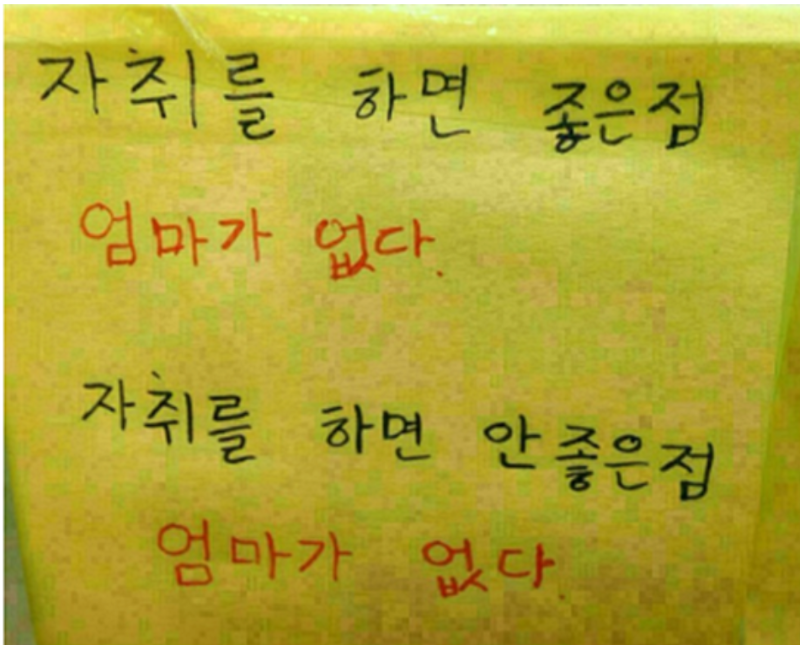 자취를 하면 좋은점
엄마가 없다.
자취를 하면 안좋은점
엄마가 없다